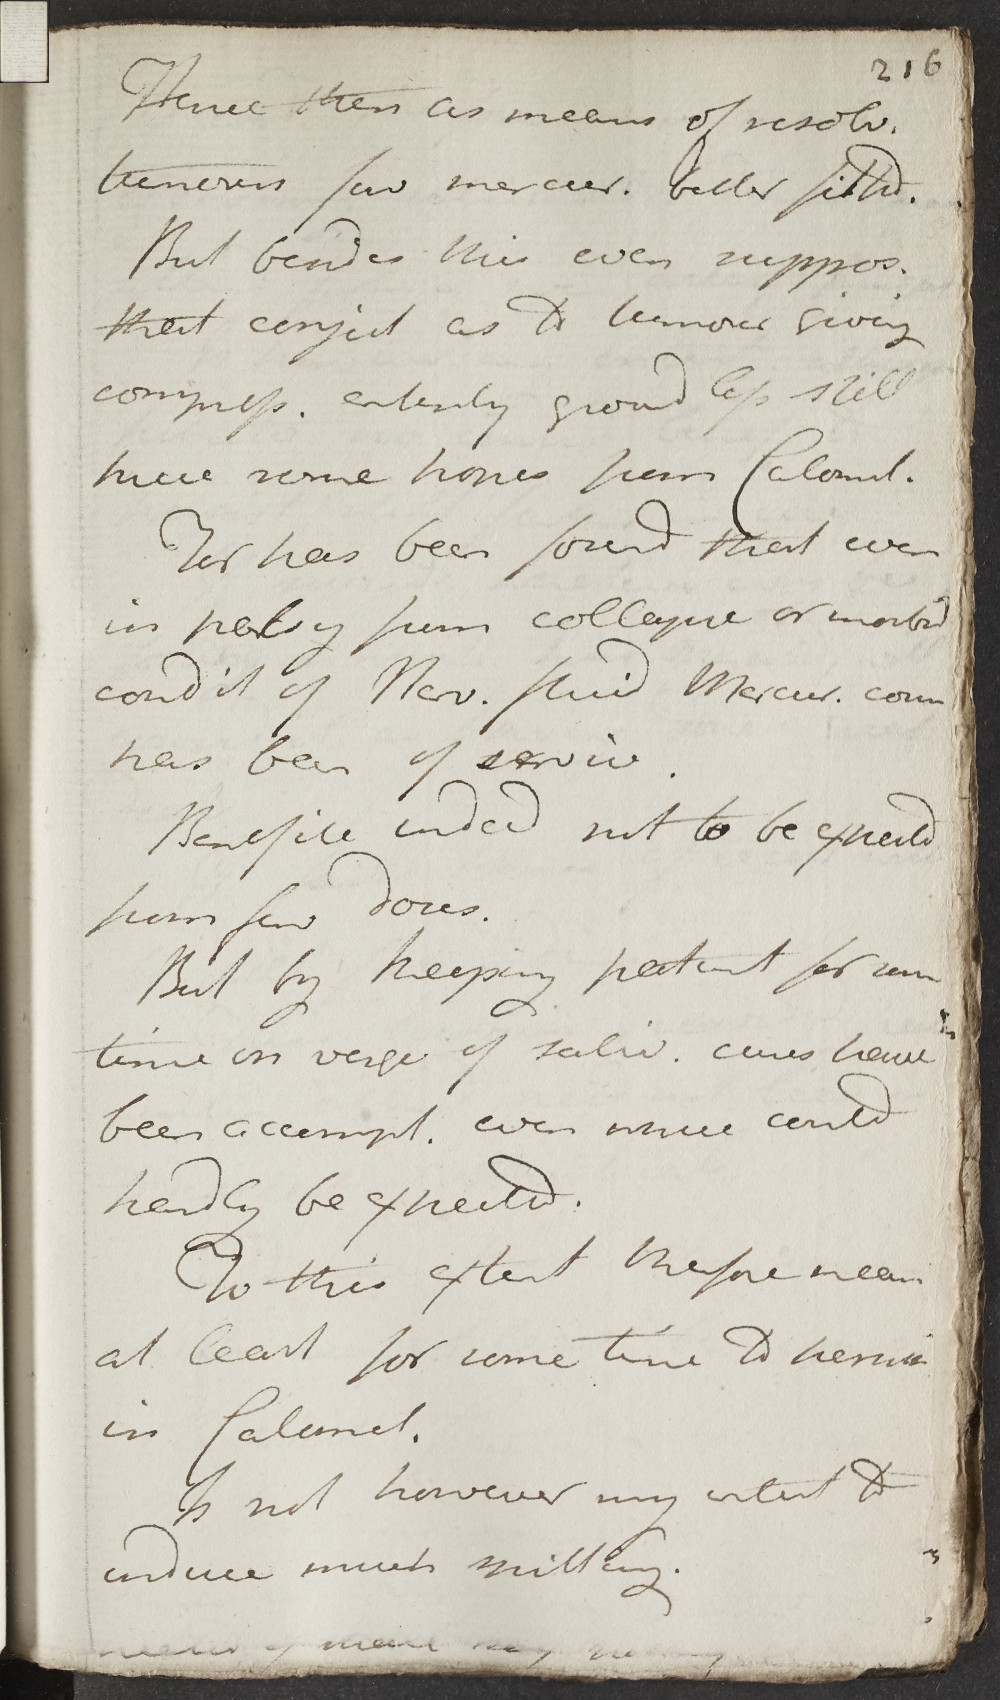 216
Hence then as means of resolv.
tumours few mercur. better fitted.
But besides this even suppos.
that conject as to tumour giving
compress. entirely ground less still
have some hopes from Calomel.
For has been found that even
in palsy from collapse or morbid
condit of Nerv. fluid Mercur. cour
has been of servic.
Benefite indeed not to be expected
from few doses.
But by keeping patient for som
time on verge of saliv. cures have
been accompl. even where could
hardly be expected.
To this extent therefore mean
at least for some time to persist
in Calomel.
Is not however my intent to
induce much spitting.